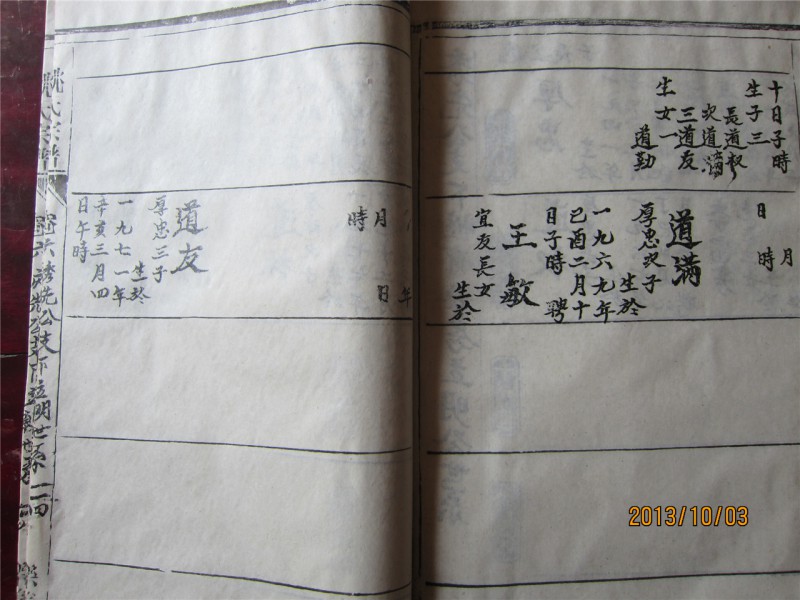 十日子時
生子三
長道權
次道滿
三道友
生女一
道勤
月
日
時
道滿
厚忠次子
生於
一九六九年
己酉二月十
日子時
聘
王敏
宜友長女
生於
年
月
日
時
道友
厚忠三子
生於
一九七一年
辛亥三月四
日午時
姚氏宗譜
2013/10/03